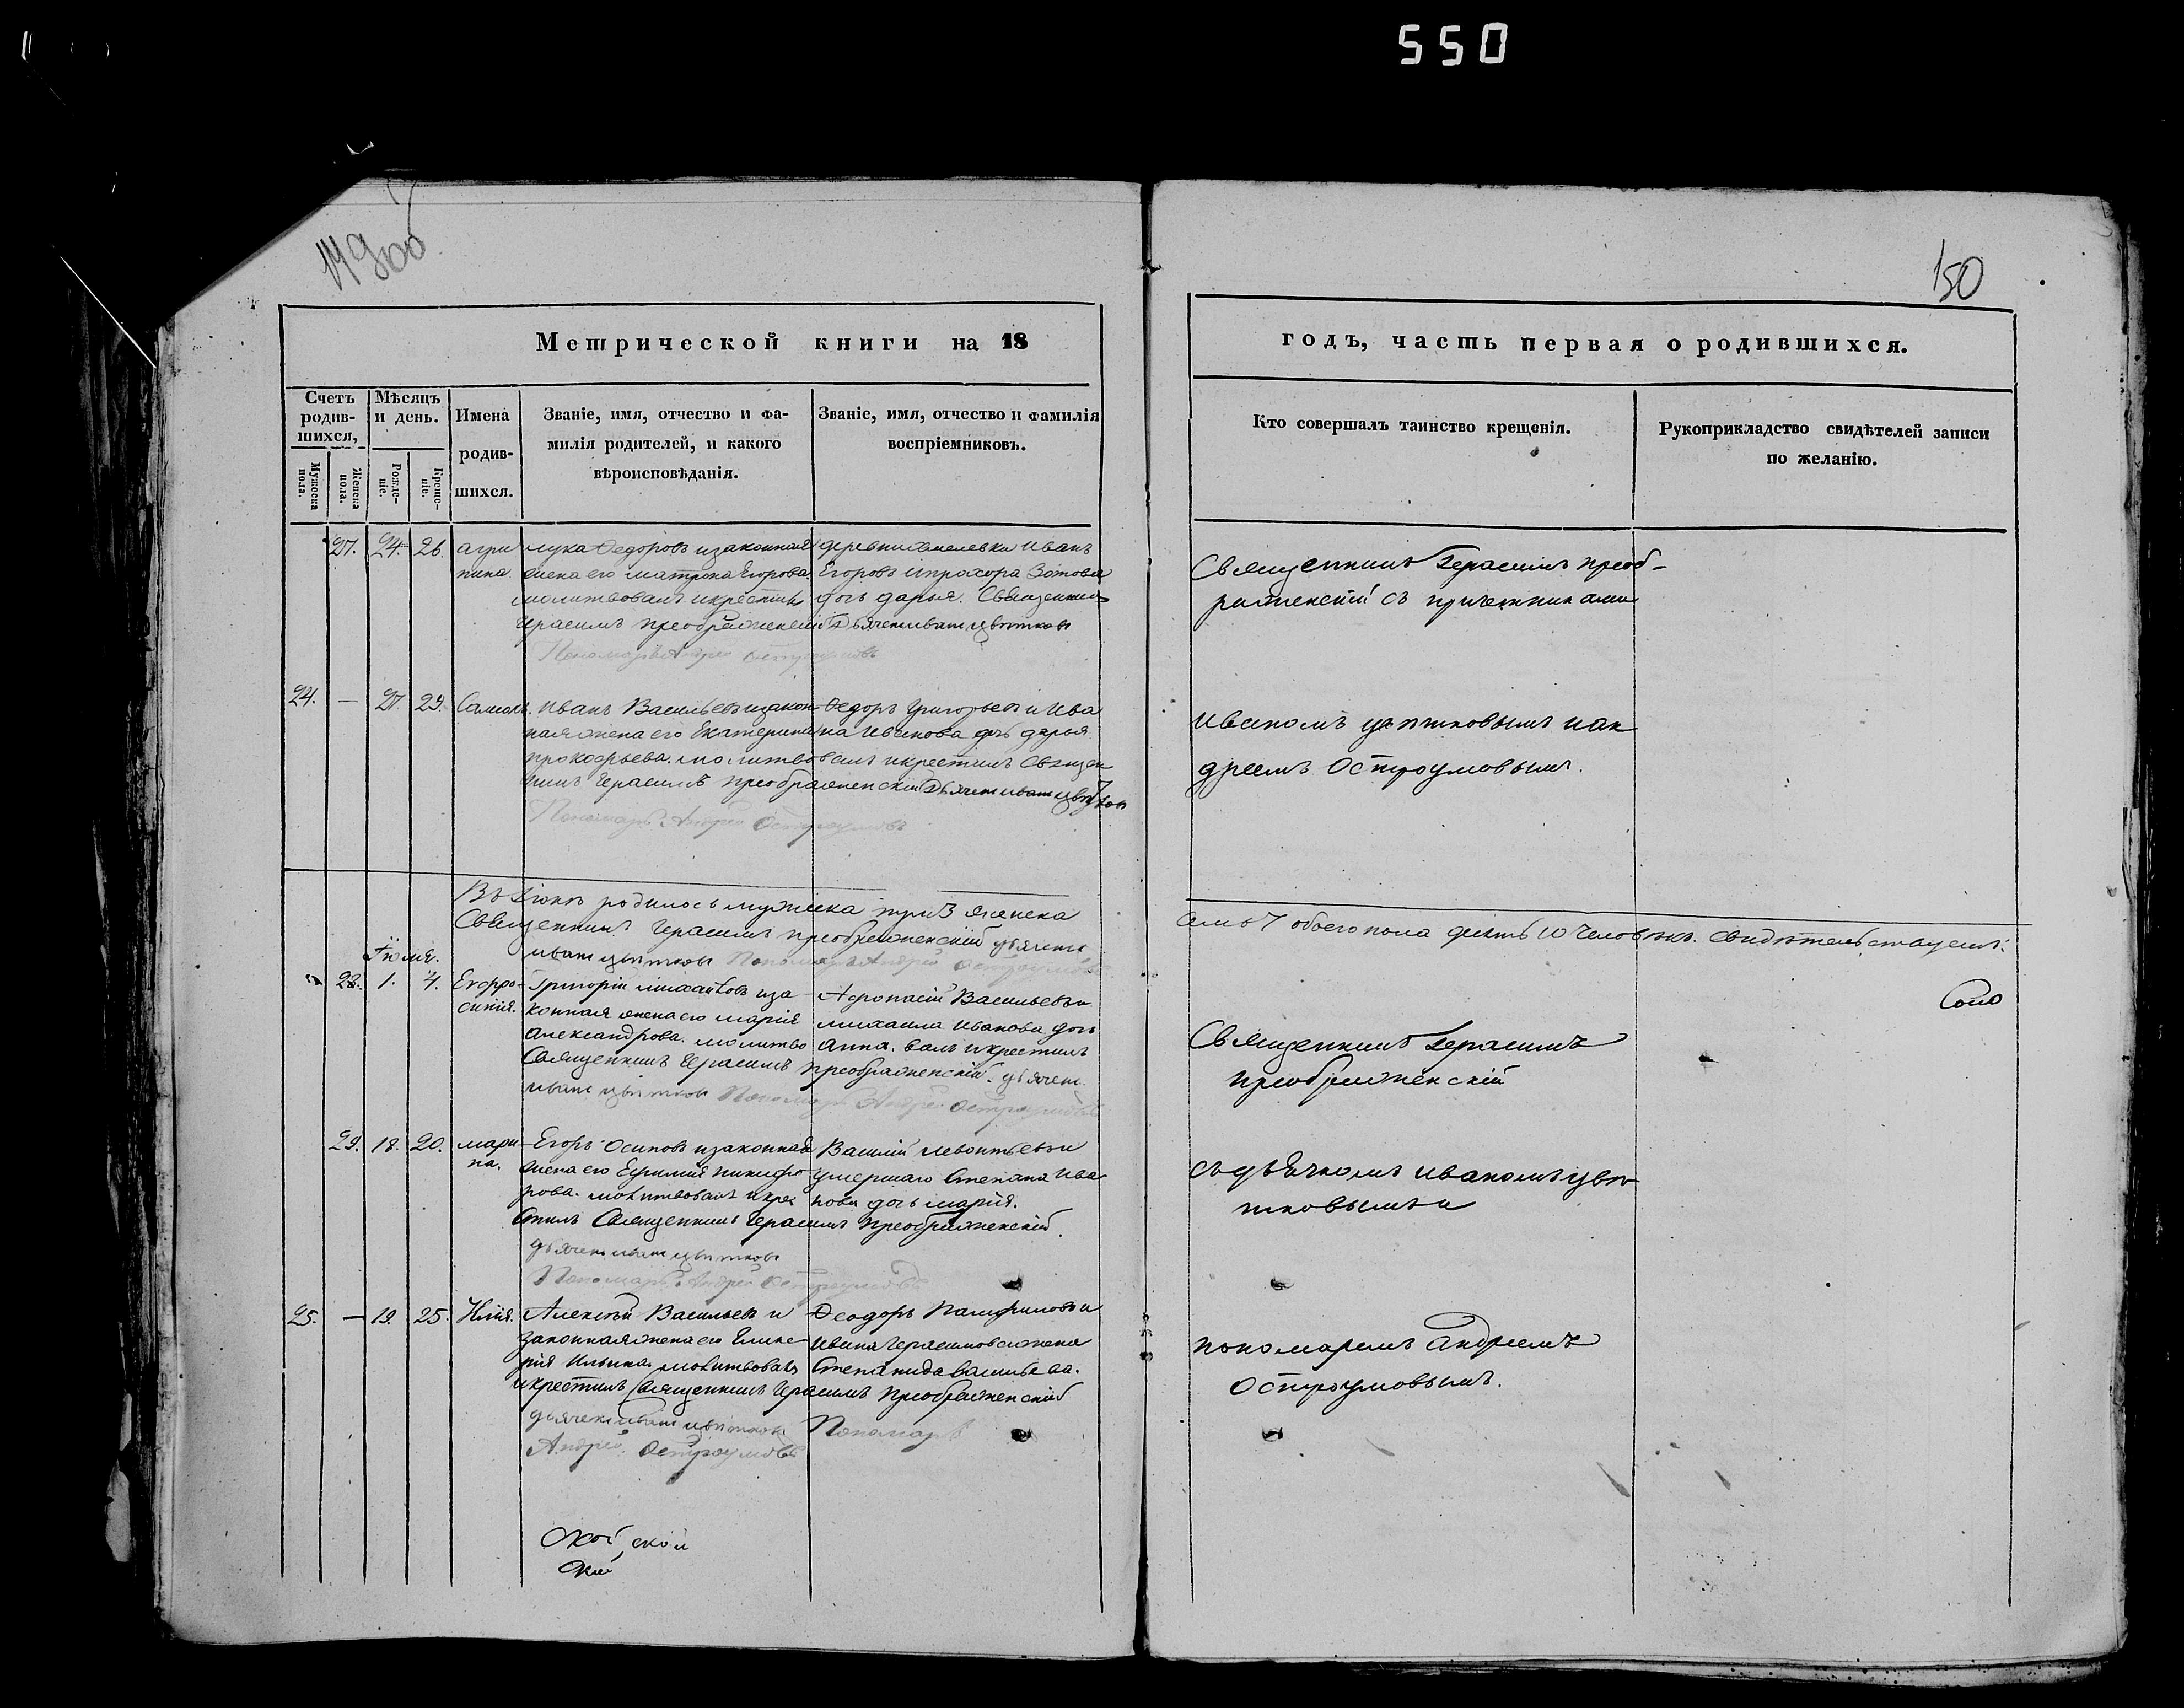 550
150
Метрической книги на 18
годъ, часть первая о родившихся.
Счетъ родив-шихся,
Мѣсяцъ и день.
Имена родив-шихся.
Званіе, имя, отчество и фа-
милія родителей, и какого
вѣроисповѣданія.
Званіе, имя, отчество и фамилія
воспріемниковъ.
Мужеска пола.
Женска пола.
Рожде-ніе.
Креще-ніе.
Кто совершалъ таинство крещенія.
Рукоприкладство свидѣтелей записи
по желанію.
27. 24. 26. агри лука Федоровъ изаконная деревни хмелевки Иванъ
пина. жена его матрона Егорова. Егоровъ ипрохора Зотова
молитвовалъ икрестилъ дочь дарья. Священникъ
Герасимъ преображенскій дьячекъ иванъ цвѣтковъ
Пономарь Андрей Остроумовъ
24. — 27. 29. Иванъ Васильевъ изакон- Федоръ григорьевъ и Ива
ная жена его Екатерина на Иванова дочь дарья
прокофьева. молитвовалъ икрестилъ Священ
никъ Герасимъ преображенскій дьячекъ иванъ цвѣтковъ
Пономарь Андрей Остроумовъ
Въ Іюнѣ родилось мужеска три 3 женска
Священникъ Герасимъ преображенскій дьячекъ
иванъ цвѣтковъ Пономарь Андрей Остроумовъ
Іюля.
28. 1. 4. Евфро- Григорій михайловъ иза- Афонасій Васильевъ и
синія. конная жена его марія михаила Иванова дочь
александрова. молитво анна. валъ икрестилъ
Священникъ Герасимъ преображенскій. дьячекъ
иванъ цвѣтковъ Пономарь Андрей Остроумовъ
29. 18. 20. мари- Егоръ Осиповъ изаконная Василій леонтьевъ и
на. жена его Ефимія никифо умершаго Степана Ива
рова. молитвовалъ икре нова дочь марія.
стилъ Священникъ Герасимъ преображенскій.
дьячекъ иванъ цвѣтковъ
Пономарь Андрей Остроумовъ
25. — 19. 25. Илія. Алексѣй Васильевъ и Феодоръ Памфиловъ и
законная жена его Глике- Ивана Герасимова жена
рія Ильина. молитвовалъ Степанида васильева.
икрестилъ Священникъ Герасимъ преображенскій
дьячекъ иванъ цвѣтковъ Пономарь
Андрей Остроумовъ
Священникъ Герасимъ преоб-
раженскій съ причетниками
Иваномъ цвѣтковымъ иан
дреемъ Остроумовымъ.
семь 7 обоего пола десять 10 человѣкъ. свидѣтельствуемъ:
Священникъ Герасимъ
преображенскій
съ дьячкомъ иваномъ цвѣ
тковымъ и
пономаремъ андреемъ
Остроумовымъ.